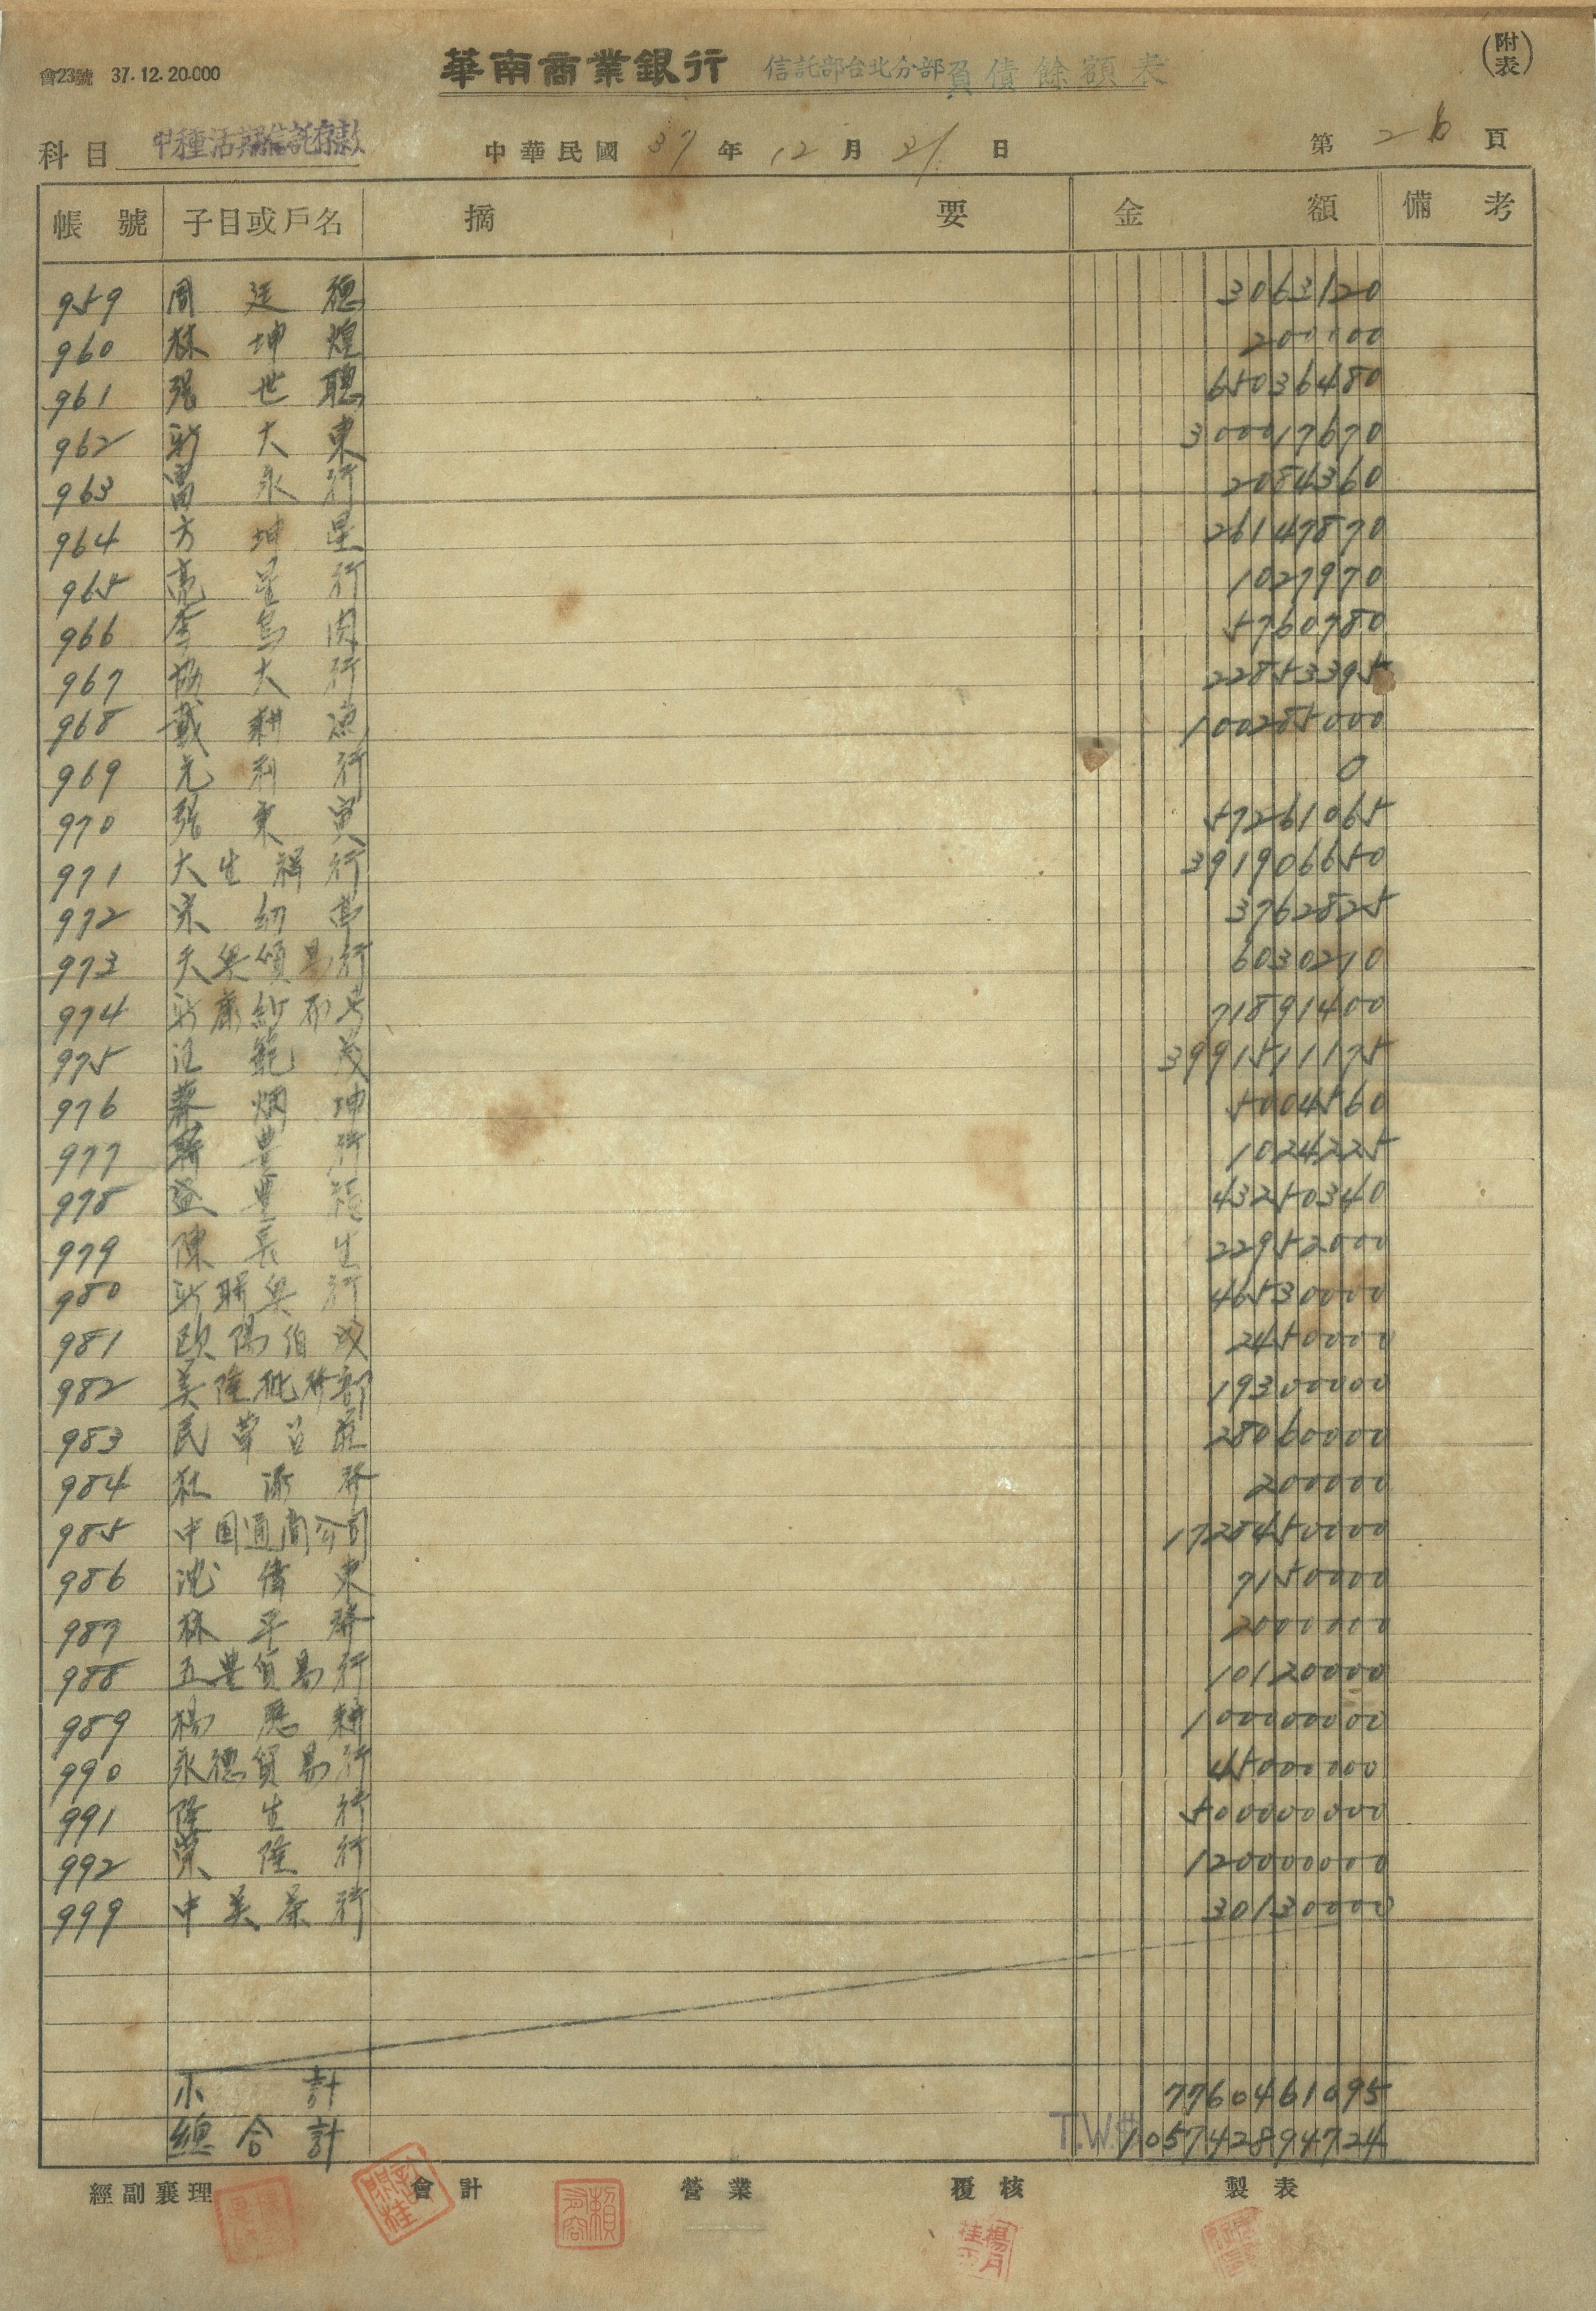 會23號 37.12.20.000
華南商業銀行 信託部台北分部負債餘額表
(附表)
科目 甲種活期信託存款 中華民國 37 年 12 月 31 日 第 26 頁
帳號 子目或戶名 摘要 金額 備考
959 周廷德 3063120
960 林坤煌 200000
961 張世聰 65036480
962 新大東 300017670
963 富永行 2084360
964 方坤星 26147870
965 亮星行 1027970
966 李烏肉 5760780
967 協大行 22853395
968 戴耕 100285000
969 元利行 0
970 張東寅 57261065
971 大生祥行 391906650
972 宋幼 3762825
973 天興貿易行 6030210
974 新康紗布号 71891400
975 汪範茂 3991511175
976 蔡炳坤 5004560
977 豊行 1024225
978 益豊 43250340
979 陳長生 22952000
980 新聯興行 46530000
981 歐陽伯成 2450000
982 美隆批發部 19300000
983 民華 28060000
984 杜添發 200000
985 中国通商公司 1728450000
986 沈偉東 7150000
987 林平發 2000000
988 五豊貿易行 10120000
989 楊應耕 100000000
990 永德貿易行 45000000
991 隆生行 500000000
992 榮隆行 120000000
999 中美茶行 30130000
小計 7760461095
總合計 T.W.$ 105742894724
經副襄理 會計 營業 覆核 製表